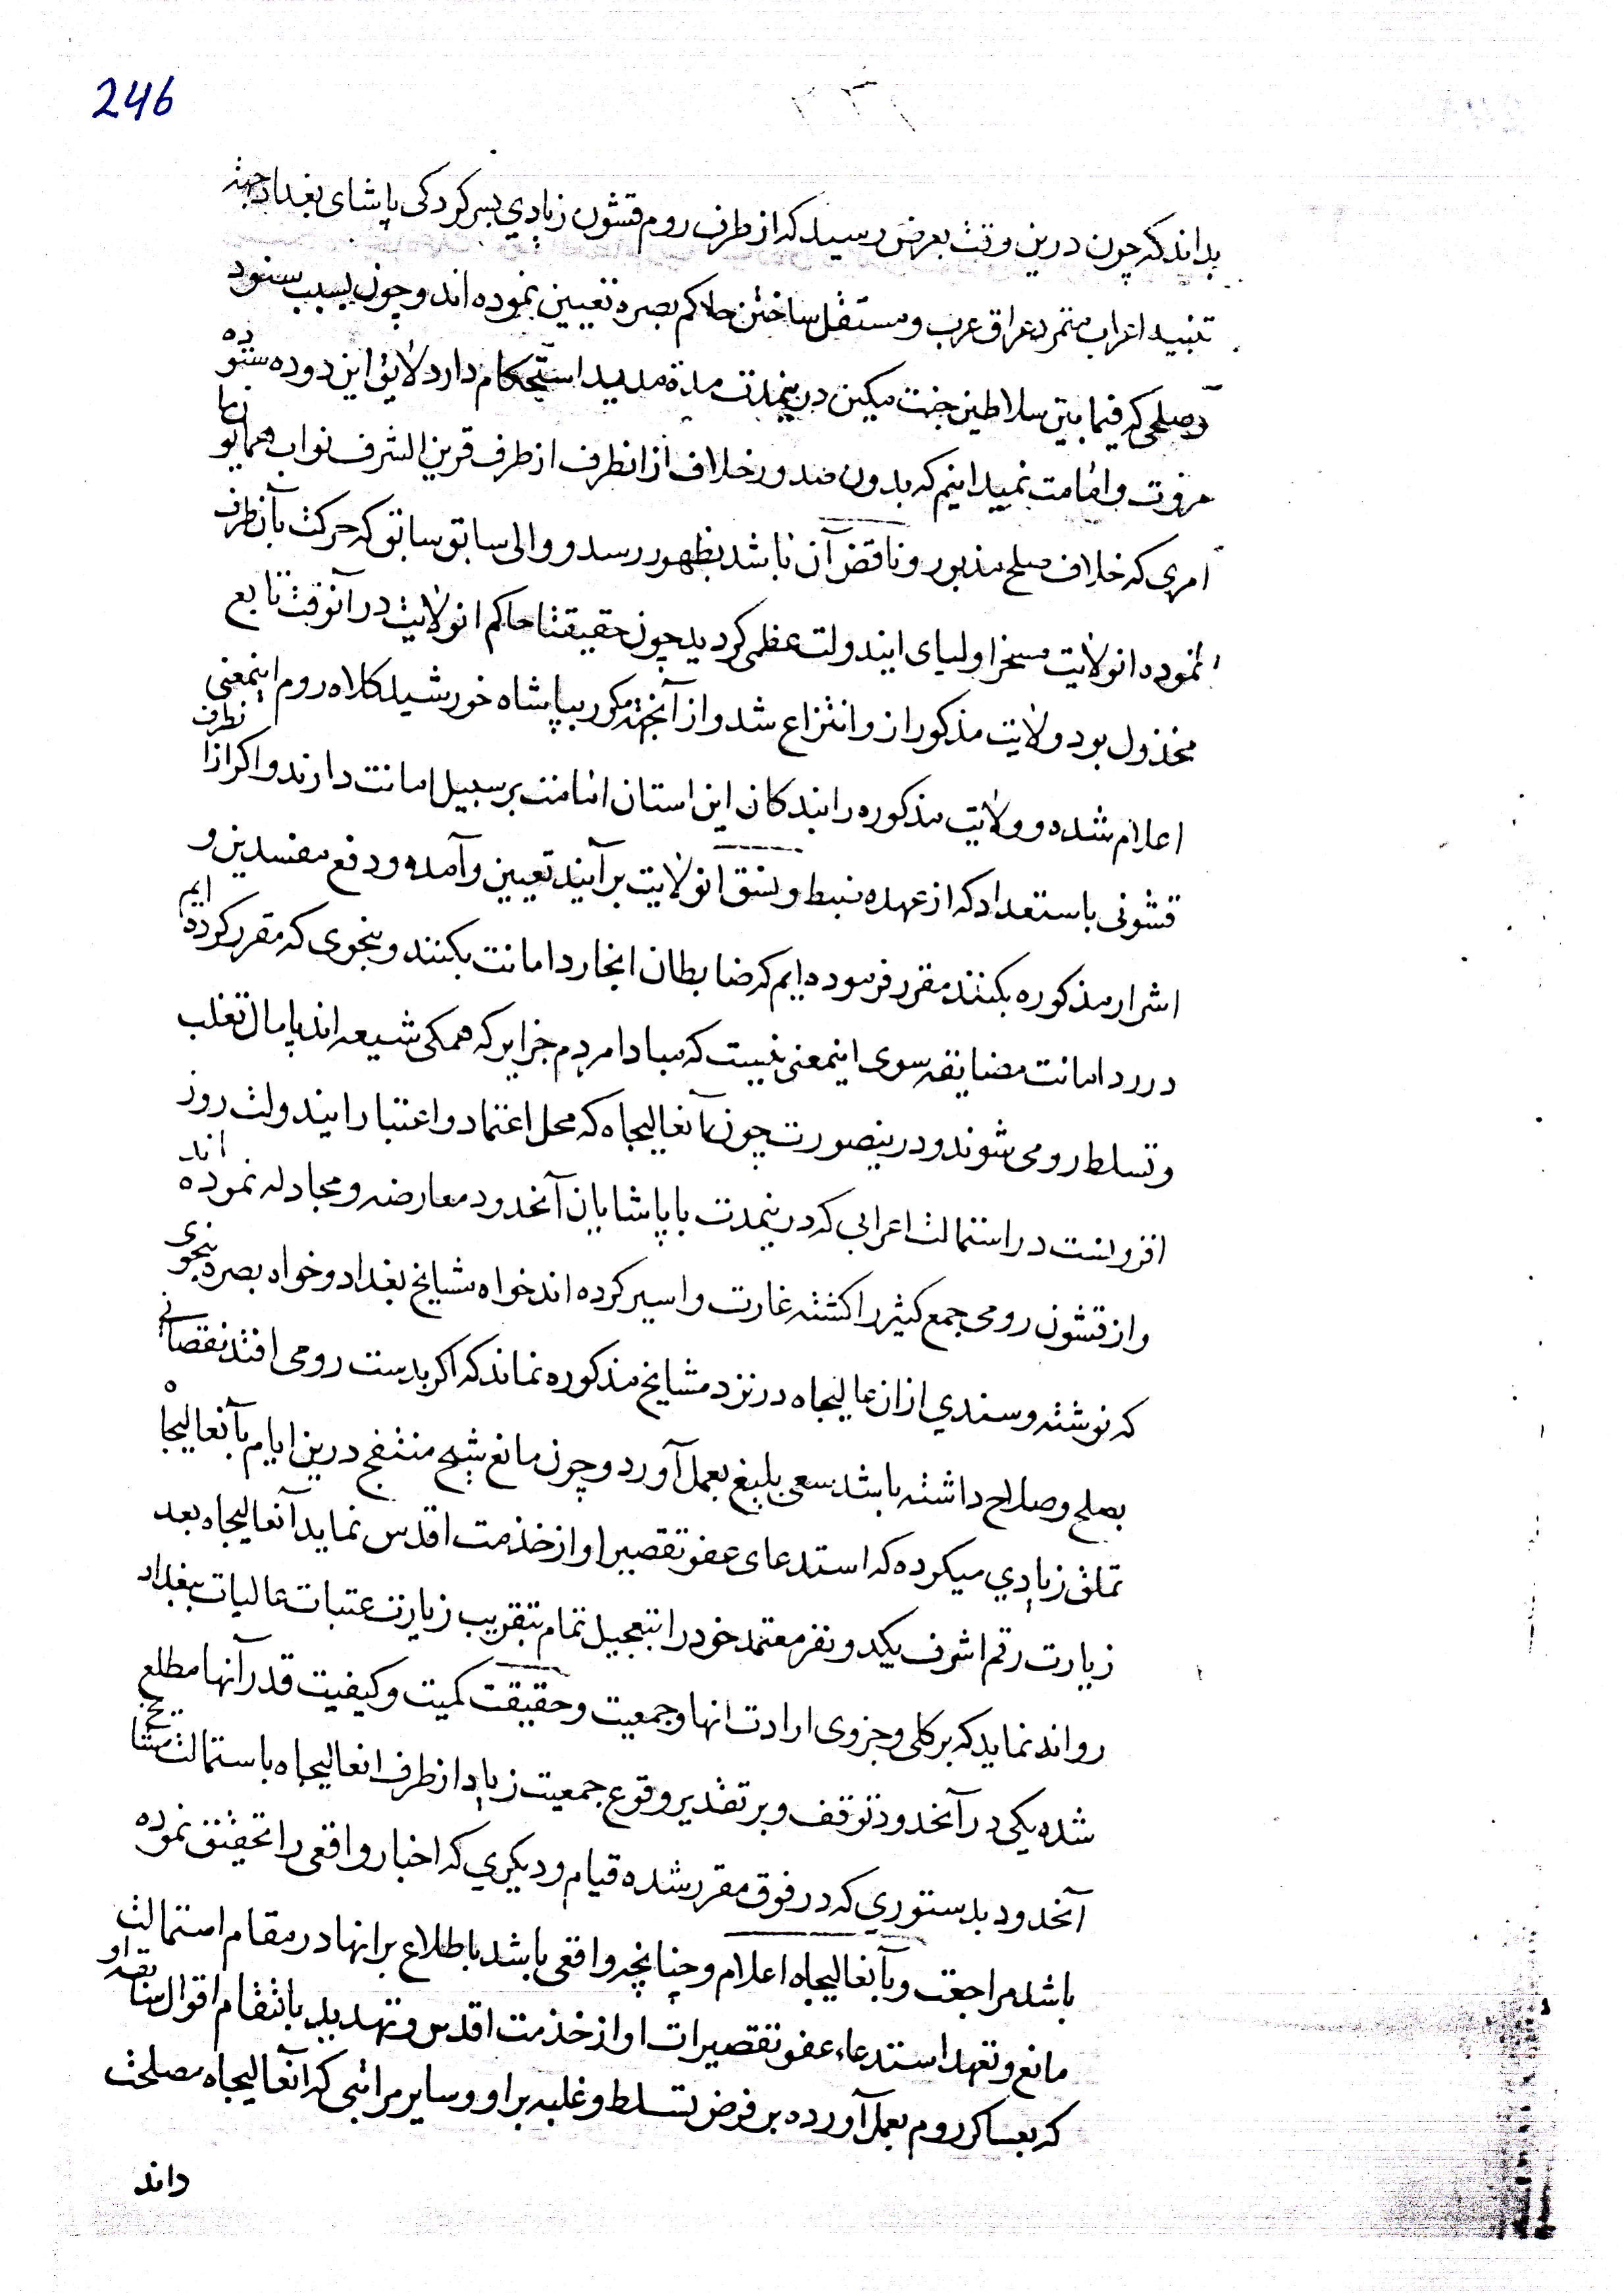 246
۲۳۱
بداند که چون درین وقت بعرض رسید که از طرف روم قشون زیادی بسرکردکی پاشای بغداد جهته
تنبیه اعراب متمرد عراق عرب و مستقل ساختن حاکم بصره تعیین نموده اند و چون بسبب سنود
و صلحی که فیمابین سلاطین جنت مکین درینمدت مدة مدید استحکام دارد لایق این دوده ستوده
مروت و اقامت نمیدانیم که بدون صدور خلاف از انطرف از طرف قرین الشرف نواب همایون ما
امری که خلاف صلح مذبور و ناقض آن باشد بظهور رسد و والی سابق سابق که حرکت بآنطرف
نموده انولایت مسخر اولیای ایندولت عظمی کردید چون حقیقتا حاکم انولایت در آنوقت تابع
مخذول بود ولایت مذکور از و انتزاع شد و از آنجهة مکور بپاپشاه خورشید کلاه روم اینمعنی
اعلام شده و ولایت مذکوره را بندکان این استان اقامت بر سبیل امانت دارند و اکر ازانطرف
قشونی باستعداد که از عهده ضبط و نسق انولایت برآیند تعیین و آمده و دفع مفسدین و
اشرار مذکوره بکنند مقرر فرموده ایم که ضابطان انجا رد امانت بکنند و بنحوی که مقرر کرده ایم
در رد امانت مضایقه سوی اینمعنی نیست که مبادا مردم جزایر که همکی شیعه اند پامال تغلب
و تسلط رومی شوند و درینصورت چون آنعالیجاه که محل اعتماد و اعتبار ایندولت روز
افزونست در استمالت اعرابی که درینمدت با پاشایان آنحدود معارضه و مجادله نموده اند
و از قشون رومی جمع کثیر را کشته غارت و اسیر کرده اند خواه مشایخ بغداد و خواه بصره بنحوی
که نوشته و سندی ازان عالیجاه در نزد مشایخ مذکوره نماند که اکر بدست رومی افتد نقصانی
بصلح و صلاح داشته باشد سعی بلیغ بعمل آورد و چون مانع شیخ منتفج درین ایام بآنعالیجاه
تملق زیادی میکرده که استدعای عفو تقصیر او از خذمت اقدس نماید آنعالیجاه بعد
زیارت رقم اشرف یکدونفر معتمد خود را بتعجیل تمام بتقریب زیارت عتبات عالیات ببغداد
روانه نماید که بر کلی و جزوی ارادت انها و جمعیت و حقیقت کمیت و کیفیت قدر آنها مطلع
شده یکی در آنحدود توقف و بر تقدیر وقوع جمعیت زیاد از طرف انعالیجاه باستمالت مشایخ
آنحدود بدستوری که در فوق مقرر شده قیام و دیکری که اخبار واقعی را تحقیق نموده
باشد مراجعت و بآنعالیجاه اعلام و چنانچه واقعی باشد باطلاع بر انها در مقام استمالت
مانع و تعهد استدعاء عفو تقصیرات او از خذمت اقدس و تهدید بانتقام اقوال
که بعساکر روم بعمل آورده بر فرض تسلط و غلبه بر او و سایر مراتبی که آنعالیجاه مصلحت
داند